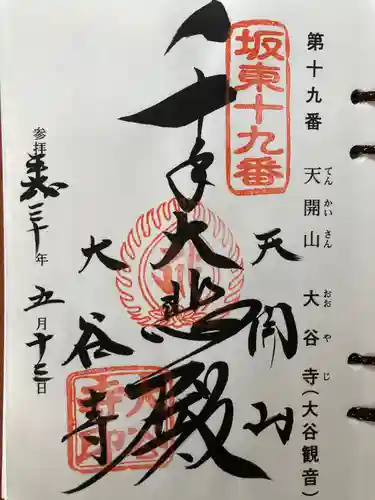 第十九番 天開山 大谷寺(大谷観音)
てんかいさん おおやじ
坂東十九番
天開山
千手大悲殿
大谷寺
参拝 三十年 五月十三日